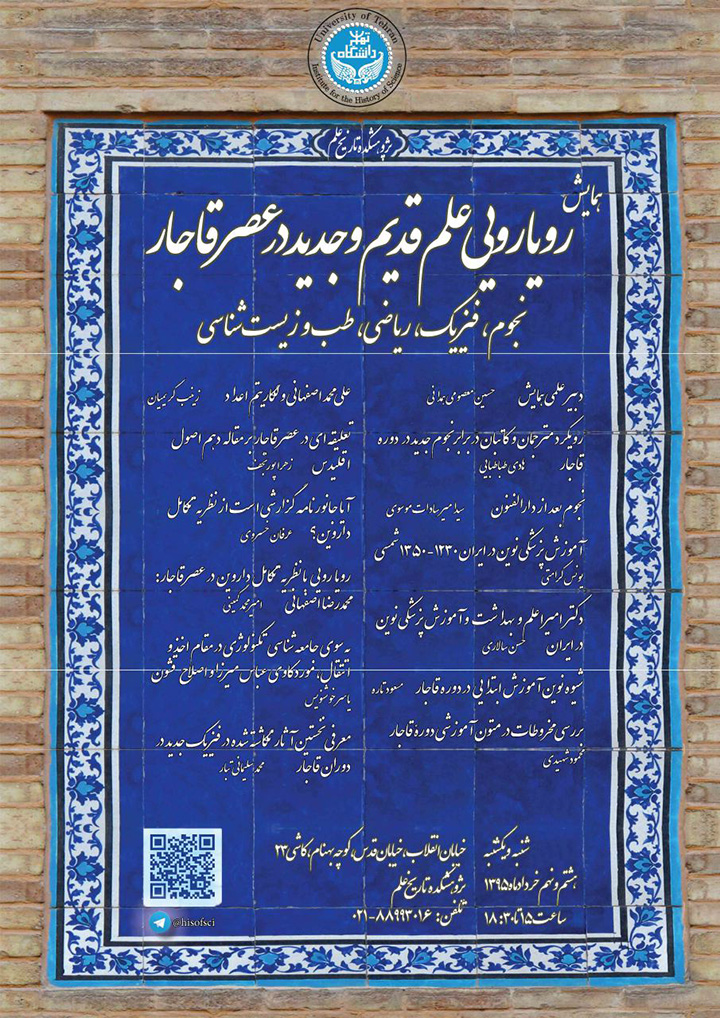 University of Tehran
دانشگاه
تهران
Institute for the History of Science
پژوهشکده تاریخ علم
همایش
رویارویی علم قدیم و جدید در عصر قاجار
نجوم، فیزیک، ریاضی، طب و زیست شناسی
دبیر علمی همایش حسین معصومی همدانی
رویکرد مترجمان و کاتبان در برابر نجوم جدید در دوره
قاجار هادی طباطبایی
نجوم بعد از دارالفنون سید امیر سادات موسوی
آموزش پزشکی نوین در ایران ۱۲۳۰-۱۳۵۰ شمسی
یونس کرامتی
دکتر امیراعلم و بهداشت و آموزش پزشکی نوین
در ایران محسن سالاری
شیوه نوین آموزش ابتدایی در دوره قاجار مسعود تاره
بررسی مخروطات در متون آموزشی دورۀ قاجار
محمود شهیدی
علی محمد اصفهانی و لگاریتم اعداد زینب کریمیان
تعلیقه ای در عصر قاجار بر مقاله دهم اصول
اقلیدس زهرا پورنجف
آیا جانورنامه گزارشی است از نظریه تکامل
داروین؟ عرفان خسروی
رویارویی با نظریه تکامل داروین در عصر قاجار:
محمدرضا اصفهانی امیرمحمد گمینی
به سوی جامعه شناسی تکنولوژی در مقام اخذ و
انتقال، مورد کاوی عباس میرزا و اصلاح قشون
یاسر خوشنویس
معرفی نخستین آثار نگاشته شده در فیزیک جدید در
دوران قاجار محمد سلیمانی تبار
شنبه و یکشنبه
هشتم و نهم خرداد ماه ۱۳۹۵
ساعت ۱۵ تا ۱۸:۳۰
خیابان انقلاب، خیابان قدس، کوچه بهنام، کاشی ۲۳
پژوهشکده تاریخ علم
تلفن: ۰۲۱-۸۸۹۹۳۰۱۶
@hisofsci